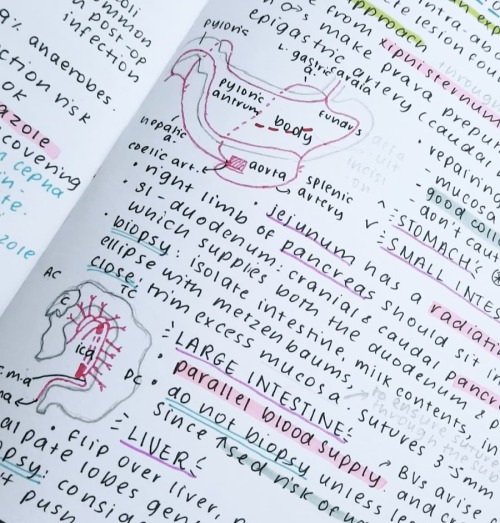 oli:
ommon
in post-op
infection
9% anaerobes.
ction risk
OK
azole
covering
n cepha
nin
ate.
20le
approach
n ♂s make prava preput
epigastric artery (caudal
from xiphisternum
te lesion
intra-ab
repairing
- mucosa
- good coll
- don't cau
pyloric
a.
L. gastric
a.
cardia
pyloric
antrum
body
fundus
hepatic
a.
coelic art.
aorta
splenic
artery
STOMACH:
SMALL INTES
• jejunum has a radiati
• right limb of pancreas should sit in
• SI - duodenum: cranial & cauda. pancr
which supplies both the duodenum & p
• biopsy: isolate intestine, milk contents, in
ellipse with merzenbaums,
close, trim excess mucosa. sutures 3-5mm
AC
TC
DC
C
ica
cma
ma
LARGE INTESTINE
• parallel blood supply.
• do not biopsy unless
since ↑sed risk of
BVs avise
and cr
LIVER
• flip over liver,
alpate lobes gen
opsy: consid
t push